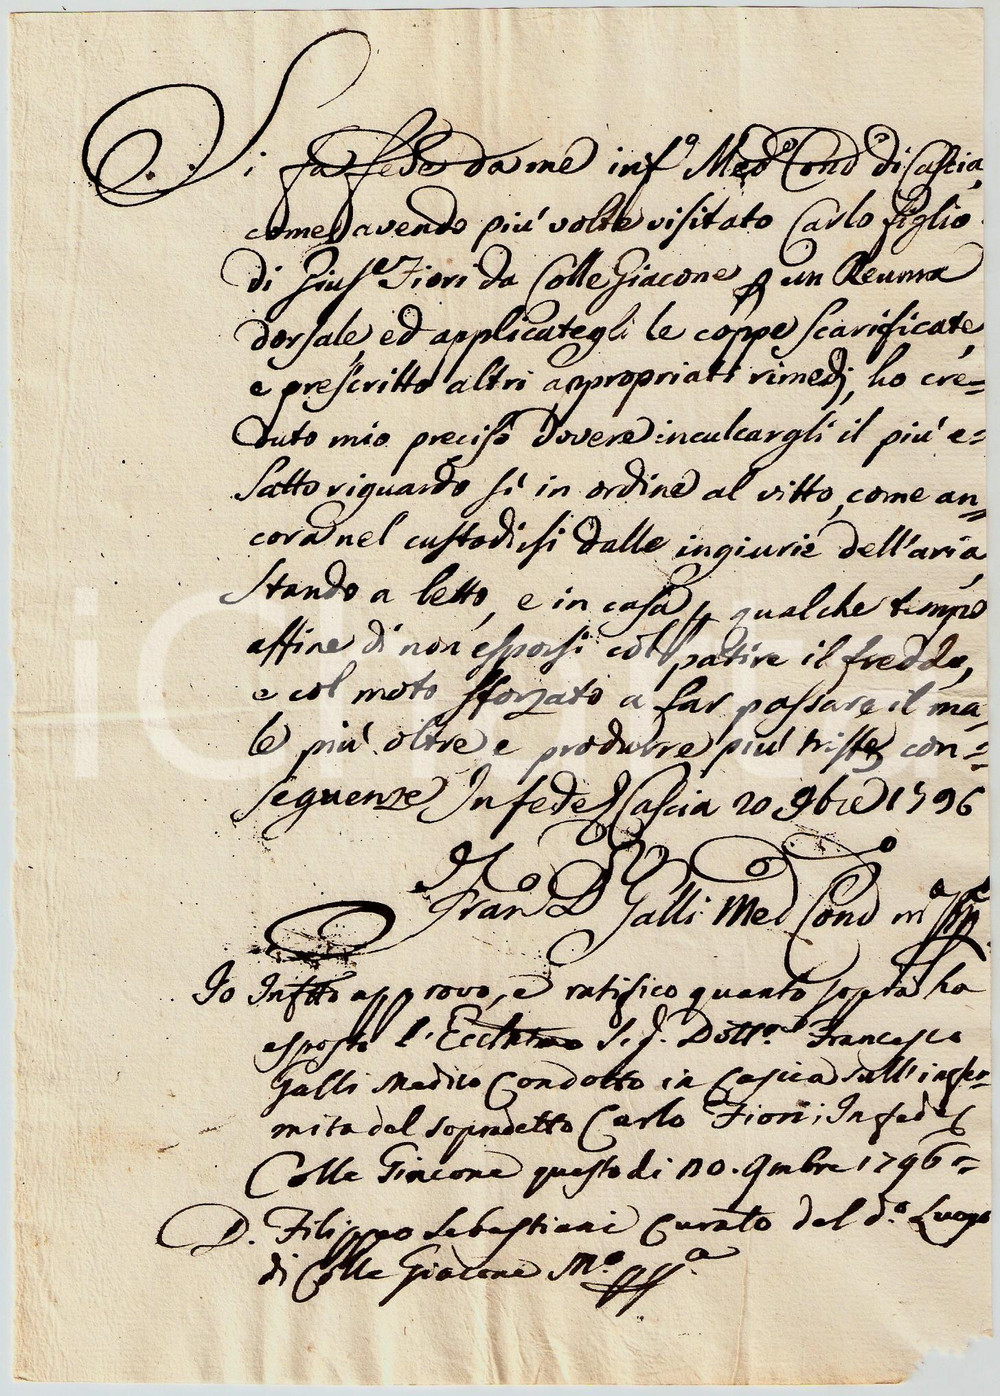 Si fa fede da me inf.º Med.º Cond.º di Cascia,
come avendo più volte visitato Carlo figlio
di Gius.e Fiori da Colle Giacone p un Reuma
dorsale ed applicategli le coppe scarificate,
e prescritto altri appropriati rimedj, ho cre=
duto mio preciso dovere inculcargli il più e=
satto riguardo sì in ordine al vitto, come an=
cora nel custodirsi dalle ingiurie dell'aria,
stando a letto, e in casa p qualche tempo
affine di non esporsi col patire il freddo,
e col moto sforzato a far passare il ma=
le più oltre e produrre più triste con=
seguenze In fede Cascia 20 9bre 1796
Fran.º D. Galli Med.º Cond.º m.a pp.a
Io Infrtto approvo, e ratifico quanto sopra ha
esposto l'Ecclmo S.r Dott.re Francesco
Galli Medico Condotto in Cascia sull'infer=
mità del sopradetto Carlo Fiori; In fede
Colle Giacone questo dì 20. 9mbre 1796=
D. Filippo Sebastiani Curato del d.º Luogo
di Colle Giacone M.º pp.a